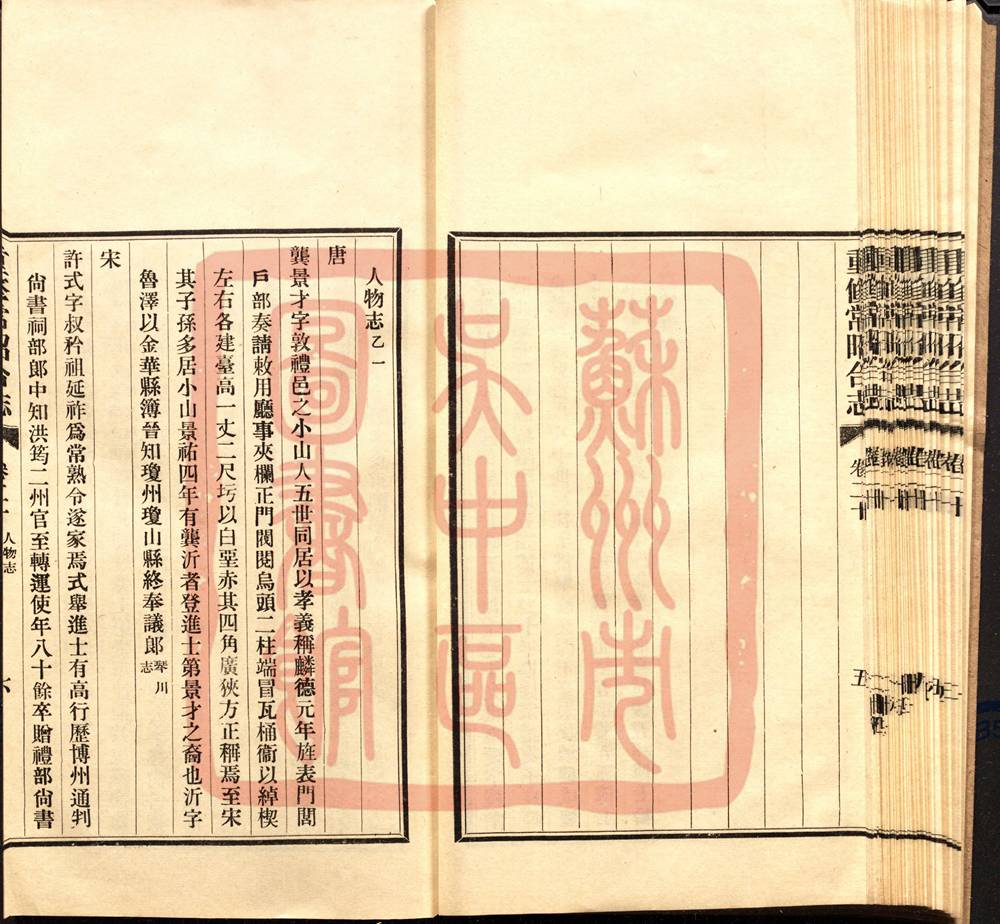 重修常昭合志
卷二十
五
人物志乙一
唐
龔景才字敦禮邑之小山人五世同居以孝義稱麟德元年旌表門閭
戶部奏請敕用廳事夾欄正門閥閱烏頭二柱端冒瓦桶衞以綽楔
左右各建臺高一丈二尺圬以白堊赤其四角廣狹方正稱焉至宋
其子孫多居小山景祐四年有龔沂者登進士第景才之裔也沂字
魯澤以金華縣簿晉知瓊州瓊山縣終奉議郞琴川志
宋
許式字叔矜祖延祚爲常熟令遂家焉式舉進士有高行歷博州通判
尙書祠部郞中知洪筠二州官至轉運使年八十餘卒贈禮部尙書
人物志
蘇州市
吳中區
圖書館